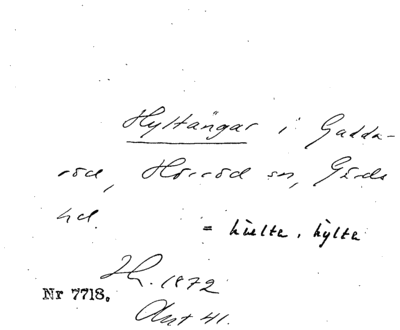 Hyltängar i Gadda-
röd, Hörröd sn, Gärds
hd.
= hùlta, hỳlta
Hh. 1872
Nr 7718.
Ant 41.